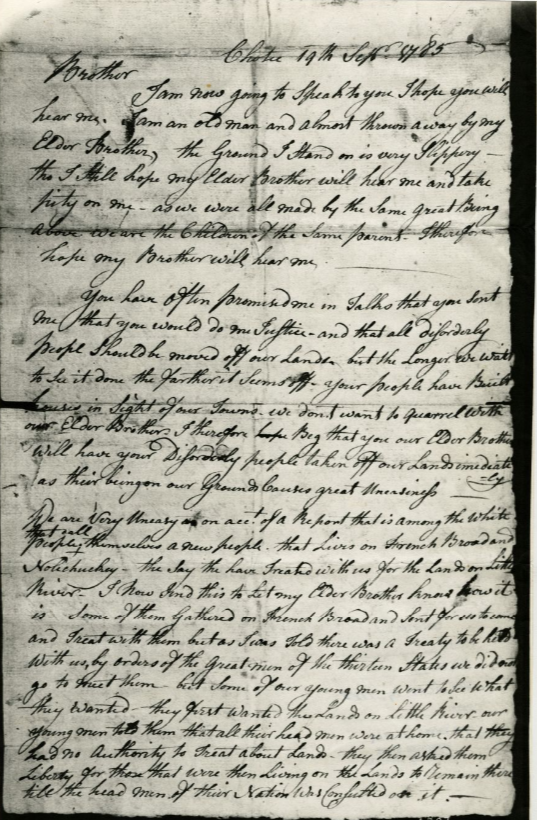 Chotee 19th Sept. 1785
Brother
I am now going to Speak to you I hope you will
hear me. I am an old man and almost thrown away by my
Elder Brother, the Ground I Stand on is very Slippery –
tho I Still hope my Elder Brother will hear me and take
pity on me – as we were all made by the Same great Being
above we are the Children of the Same parent – I therefore
hope my Brother will hear me
You have Often promised me in Talks that you Sent
me that you would do me Justice – and that all disorderly
people Should be moved off our Lands – but the Longer we want
to See it done the farther it Seems off – your people have Built
houses in Sight of our Towns – we don't want to quarrel with
our Elder Brother, I therefore hope Beg that you our Elder Brother
will have your Disorderly people taken off our Lands imediate
-ly
as their being on our Grounds Causes great Uneasiness
We are Very Uneasy on acct. of a Report that is among the White
that call
people themselves a new people. that Lives on French Broad and
Nolichuckey – the Say the have Treated with us for the Lands on Little
River. I Now Send this to Let my Elder Brother know how it
is. Some of them Gathered on French Broad and Sent for us to come
and Treat with them but as I was Told there was a Treaty to be held
with us, by orders of the Great men of the thirteen States we did not
go to meet them but Some of our young men went to See what
they wanted – they first wanted the Lands on Little River. our
young men told them that all their head men were at home that they
had no Authority to Treat about Lands – they then asked them
Liberty for those that were then Living on the Lands to remain there
till the head men of their Nation was Consulted on it. –